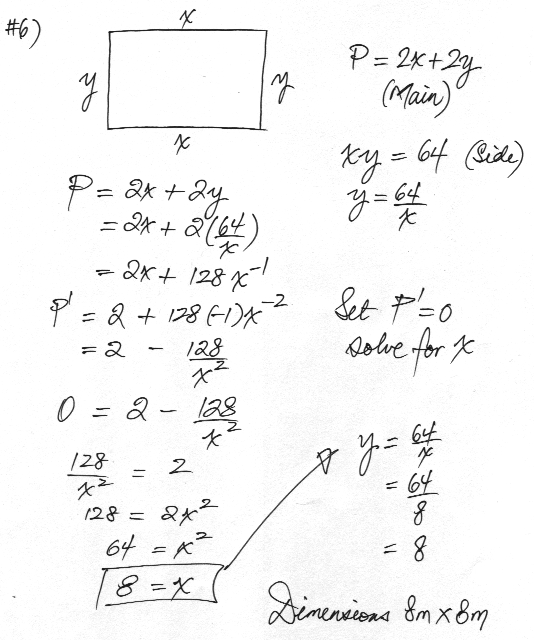 #6)
x
y
y
x
P = 2x + 2y
(Main)
xy = 64 (Side)
y = 64/x
P = 2x + 2y
= 2x + 2(64/x)
= 2x + 128x⁻¹
P' = 2 + 128(-1)x⁻²
= 2 - 128/x²
Set P' = 0
solve for x
0 = 2 - 128/x²
128/x² = 2
128 = 2x²
64 = x²
8 = x
y = 64/x
= 64/8
= 8
Dimensions 8m x 8m